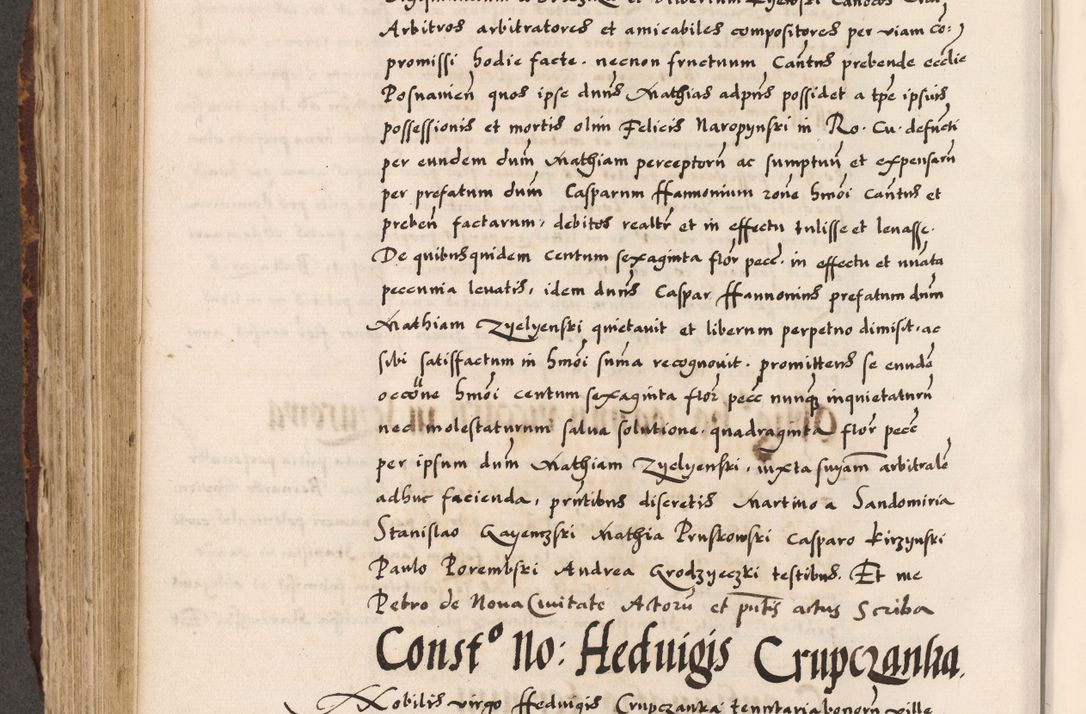 Arbitros arbitratores et amicabiles compositores per viam co:
promissi hodie facte. necnon fructuum Cantus prebende ecclie
Posnanien quos ipse dnus Mathias adpns possidet a tpe ipsius
possessionis et mortis olim Felicis Naropynski in Ro. Cu. defucti
per eundem dum Mathiam perceptoru ac sumptuu et expensaru
per prefatum dum Casparum ffannonium rone hmoi Cantus et
preben factarum, debitos realr et in effectu tulisse et levasse.
De quibusquidem centum sexaginta flor pecc. in effectu et nuata
peccunia levatis, idem dnus Caspar ffannonius prefatum dum
Mathiam Zyelyenski quietavit et liberum perpetuo dimisit, ac
sibi satisffactum in hmoi suma recognovit. promittens se eunde
occone hmoi centum sexaginta flor pecc nunq inquietaturu
nec molestaturum salva solutione. quadraginta flor pecc
per ipsum dum Mathiam Zyelyenski, iuxta suyam arbitrale
adhuc facienda, pntibus discretis Martino a Sandomiria
Stanislao Gayewzski Mathia Pruskowski Casparo Kirzynski
Paulo Porembski Andrea Grodzyeczki testibus. Et me
Petro de Nova Civitate Actoru et pntis actus Scriba
Constº No: Hedvigis Crupczanka.
Nobilis virgo Hedvigis Crupczanka tenutaria bonoru ville